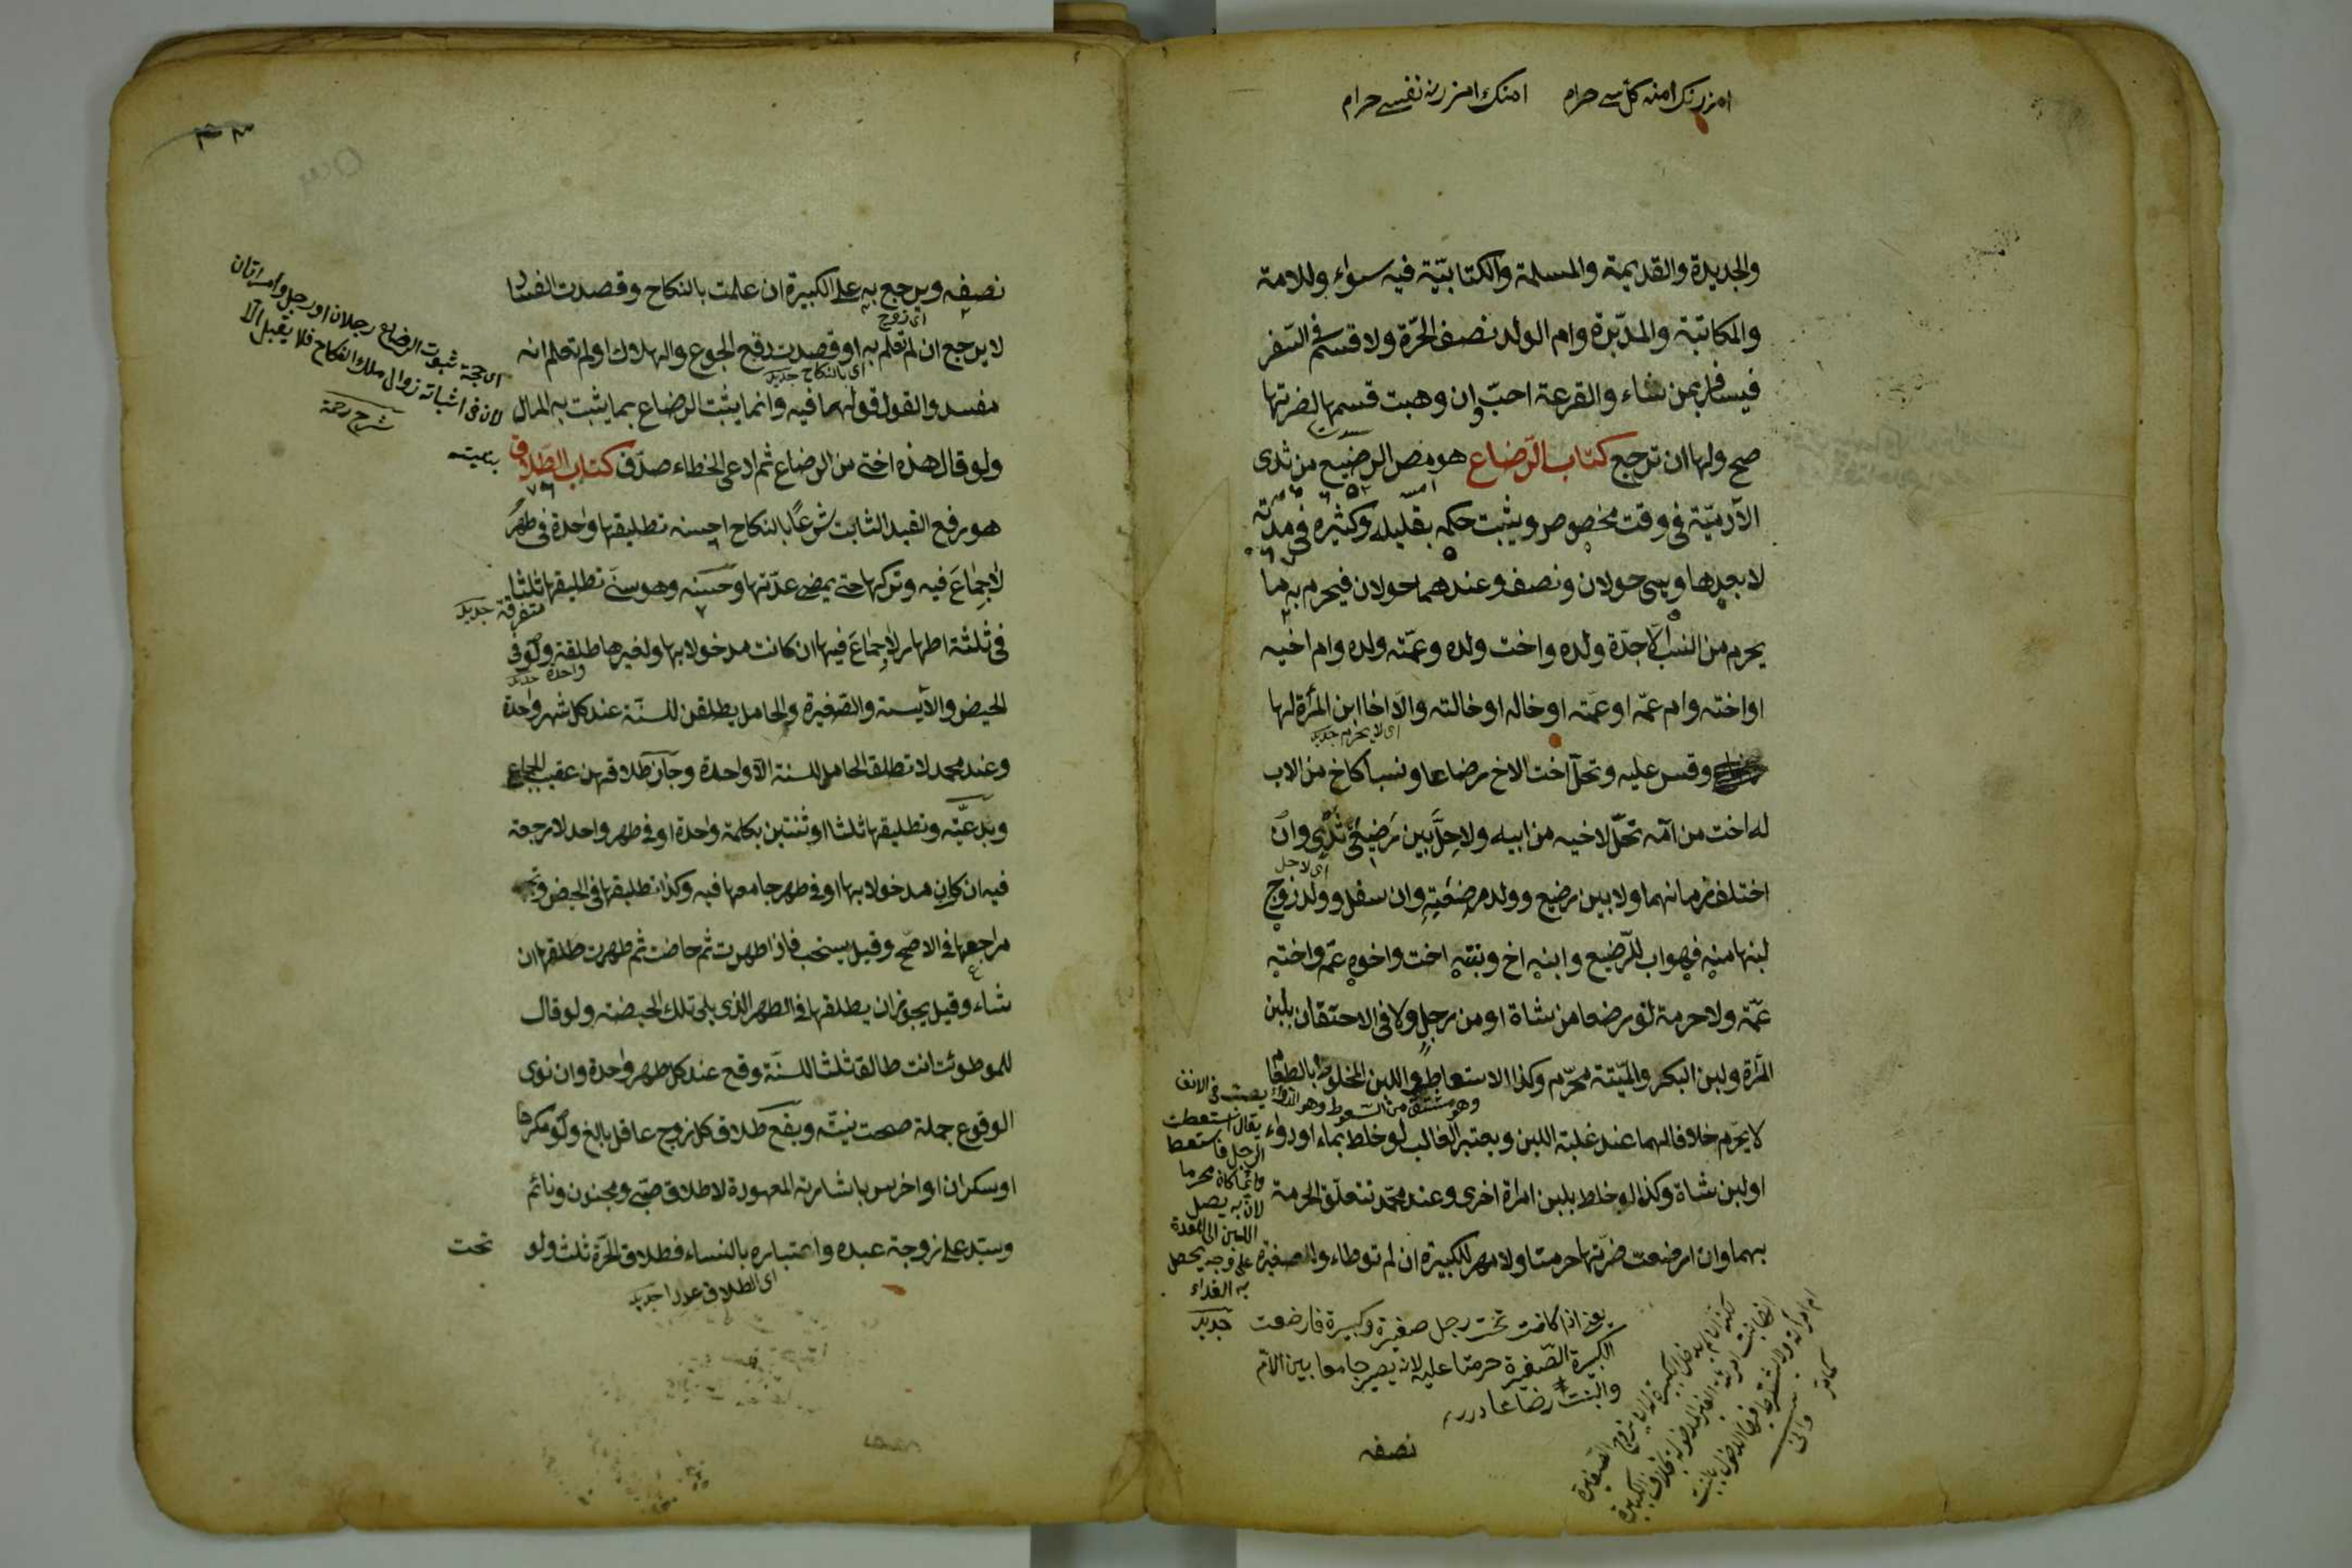 والجديدة والقديمة والمسلمة والكتابيّة فيه سواء وللامة
والمكاتبة والمدبّرة وام الولد نصف الحرّة ولا قسم فى السّفر
فيسافر بمن شاء والقرعة احبّ وان وهبت قسمها لضرتها
صح ولها ان ترجع كتاب الرّضاع هو مص الرضيع من ثدى
الآدميّة فى وقت مخصوص ويثبت حكمه بقليله وكثيره فى مدّته
لا بعدها وهى حولان ونصف وعندهما حولان فيحرم به ما
يحرم من النسب الّا جدّة ولده واخت ولده وعمّته ولده وام اخيه
او اخته وام عمّه او عمّته او خاله او خالته والّا اخا ابن المرأة لها
اى لا يحرم جديد
وقس عليه وتحلّ اخت الاخ رضاعا ونسبا كاخ من الاب
له اخت من امّه تحلّ لاخيه من ابيه ولا حلّ بين رضيعى ثدى وان
اى لا حل
اختلف زمانهما ولا بين رضيع وولد مرضعته وان سفل وولد زوج
لبنها منه فهو اب للرّضيع وابنه اخ وبنته اخت واخوه عمّ واخته
عمّة ولا حرمة لو رضعا من شاة او من رجل ولا فى الاحتقان بلبن
المرأة ولبن البكر والميّتة محرّم وكذا الاستعاط واللبن المخلوط بالطعام
وهو مشتق من السعوط وهو الدواء يصب فى الانف
لا يحرّم خلافا لهما عند غلبة اللبن ويعتبر الغالب لو خلط بماء او دواء
او لبن شاة وكذا لو خلط بلبن امراة اخرى وعند محمّد تتعلّق الحرمة
بهما وان ارضعت ضرّتها حرمتا ولا مهر للكبيرة ان لم توطاء وللصغيرة
يقال استعطت
الرجل فاستعط
وانما كان محرما
لان به يصل
اللبن الى المعدة
على وجه يحصل
به الغذاء
جديد
يعنى اذا كانت تحت رجل صغيرة وكبيرة فارضعت
الكبيرة الصّغيرة حرمتا عليه لانه يصير جامعا بين الامّ
والبنت رضاعا درر
نصفه
نصفه ويرجع به على الكبيرة ان علمت بالنكاح وقصدت الفساد
اى زوج
لا يرجع ان لم تعلم به او قصدت دفع الجوع والهلاك او لم تعلم انه
اى بالنكاح جديد
مفسد والقول قولهما فيه وانما يثبت الرضاع بما يثبت به المال
ولو قال هذه اختى من الرضاع ثم ادعى الخطاء صدّق كتاب الطّلاق
هو رفع القيد الثابت شرعًا بالنكاح احسنه تطليقها واحدة فى طهر
لا جماع فيه وتركها حتى يمضى عدّتها وحسنه وهو سنّى تطليقها ثلثا
متفرقة جديد
فى ثلثة اطهار لا جماع فيها ان كانت مدخولا بها ولغيرها طلقة ولو فى
واحدة جديد
الحيض والآيسة والصّغيرة والحامل يطلقن للسّنة عند كل شهر واحدة
وعند محمد لا تطلق الحامل للسنة الّا واحدة وجاز طلاقهن عقيب الجماع
وبدعيّه وتطليقها ثلثا او ثنتين بكلمة واحدة او فى طهر واحد لا رجعة
فيه ان كان مدخولا بها او فى طهر جامعها فيه وكذا تطليقها فى الحيض
مراجعها فى الاصّح وقيل يستحب فاذا طهرت ثم حاضت ثم طهرت طلقها ان
شاء وقيل يجوز ان يطلقها فى الطهر الذى يلى تلك الحيضة ولو قال
للموطوئة انت طالق ثلثا للسنّة وقع عند كل طهر واحدة وان نوى
الوقوع جملة صحت نيته ويقع طلاق كل زوج عاقل بالغ ولو مكرها
او سكران او اخرس باشارته المعهودة لا طلاق صبّى ومجنون ونائم
وسيّد على زوجة عبده واعتباره بالنساء فطلاق الحرّة ثلث ولو
اى الطلاق عددا جديد
تحت
اى حجة ثبوت الرضاع رجلان او رجل وامراتان
لان فى اثباته زوال ملك النكاح فلا يقبل الّا
شرح رحمة